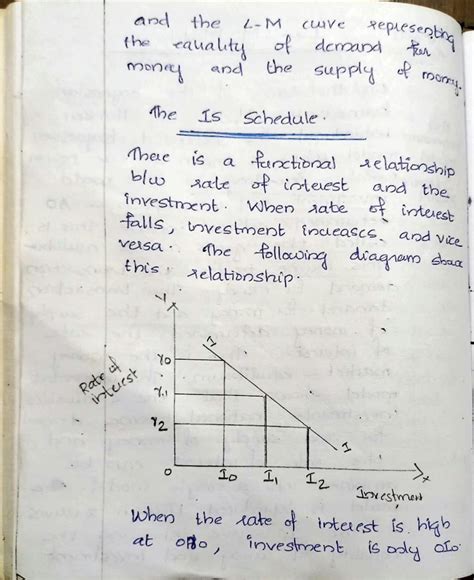 and the L-M curve representing
the equality of demand for
money and the supply of money.
The Is Schedule.
There is a functional relationship
b/w rate of interest and the
investment. When rate of interest
falls, investment increases and vice
versa. The following diagram
this relationship.
Y
r0
I
Rate of
interest
r1
r2
I
0
I0 I1 I2
x
Investment
When the rate of interest is high
at or0, investment is only oI0.